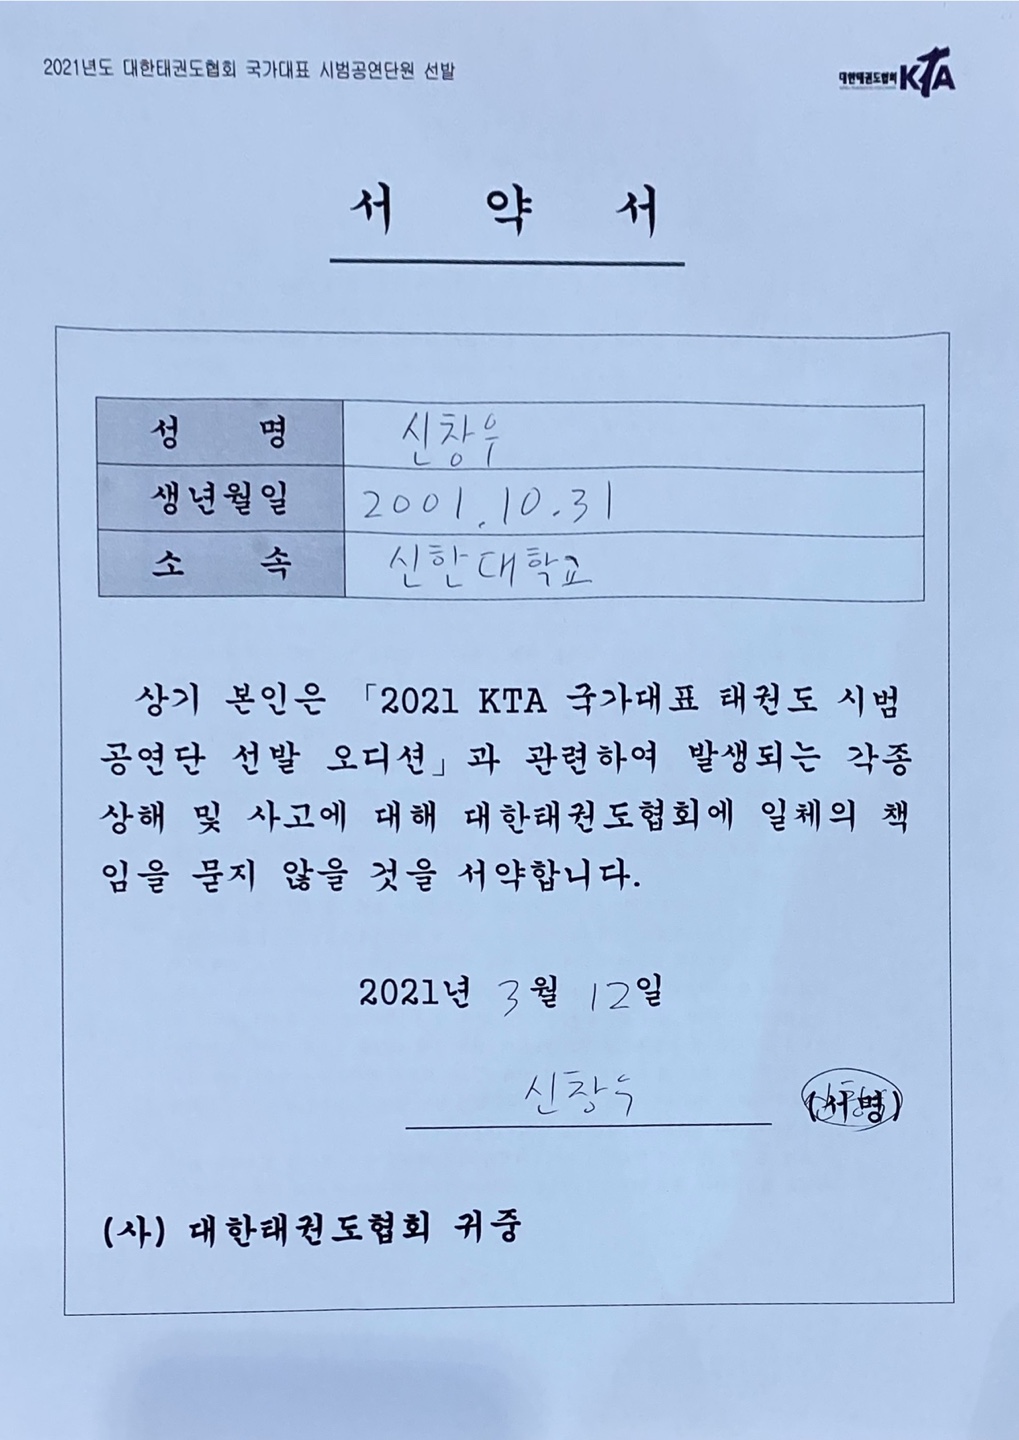 2021년도 대한태권도협회 국가대표 시범공연단원 선발
대한태권도협회 KTA
서 약 서
성 명 신창우
생년월일 2001.10.31
소 속 신한대학교
상기 본인은 「2021 KTA 국가대표 태권도 시범
공연단 선발 오디션」과 관련하여 발생되는 각종
상해 및 사고에 대해 대한태권도협회에 일체의 책
임을 묻지 않을 것을 서약합니다.
2021년 3월 12일
신창우 (서명)
(사) 대한태권도협회 귀중